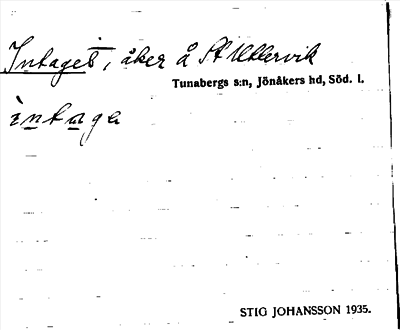 Intaget, åker å St Utlervik
Tunabergs s:n, Jönåkers hd, Söd. l.
intaga
STIG JOHANSSON 1935.